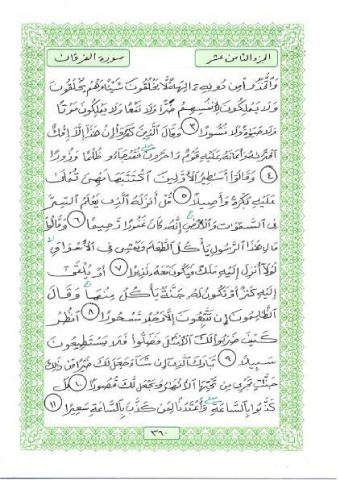 الجزء الثامن عشر
سورة الفرقان
وَاتَّخَذُوا مِن دُونِهِ ءَالِهَةً لَّا يَخْلُقُونَ شَيْئًا وَهُمْ يُخْلَقُونَ
وَلَا يَمْلِكُونَ لِأَنفُسِهِمْ ضَرًّا وَلَا نَفْعًا وَلَا يَمْلِكُونَ مَوْتًا
وَلَا حَيَوٰةً وَلَا نُشُورًا ٣ وَقَالَ الَّذِينَ كَفَرُوا إِنْ هَٰذَا إِلَّا إِفْكٌ
افْتَرَىٰهُ وَأَعَانَهُ عَلَيْهِ قَوْمٌ ءَاخَرُونَ فَقَدْ جَاءُو ظُلْمًا وَزُورًا
٤ وَقَالُوا أَسَٰطِيرُ الْأَوَّلِينَ اكْتَتَبَهَا فَهِيَ تُمْلَىٰ
عَلَيْهِ بُكْرَةً وَأَصِيلًا ٥ قُلْ أَنزَلَهُ الَّذِي يَعْلَمُ السِّرَّ
فِي السَّمَٰوَٰتِ وَالْأَرْضِ إِنَّهُ كَانَ غَفُورًا رَّحِيمًا ٦ وَقَالُوا
مَالِ هَٰذَا الرَّسُولِ يَأْكُلُ الطَّعَامَ وَيَمْشِي فِي الْأَسْوَاقِ
لَوْلَا أُنزِلَ إِلَيْهِ مَلَكٌ فَيَكُونَ مَعَهُ نَذِيرًا ٧ أَوْ يُلْقَىٰ
إِلَيْهِ كَنزٌ أَوْ تَكُونُ لَهُ جَنَّةٌ يَأْكُلُ مِنْهَا وَقَالَ
الظَّٰلِمُونَ إِن تَتَّبِعُونَ إِلَّا رَجُلًا مَّسْحُورًا ٨ انظُرْ
كَيْفَ ضَرَبُوا لَكَ الْأَمْثَٰلَ فَضَلُّوا فَلَا يَسْتَطِيعُونَ
سَبِيلًا ٩ تَبَارَكَ الَّذِي إِن شَاءَ جَعَلَ لَكَ خَيْرًا مِّن ذَٰلِكَ
جَنَّٰتٍ تَجْرِي مِن تَحْتِهَا الْأَنْهَٰرُ وَيَجْعَل لَّكَ قُصُورًا ١٠ بَلْ
كَذَّبُوا بِالسَّاعَةِ وَأَعْتَدْنَا لِمَن كَذَّبَ بِالسَّاعَةِ سَعِيرًا ١١
٣٦٠